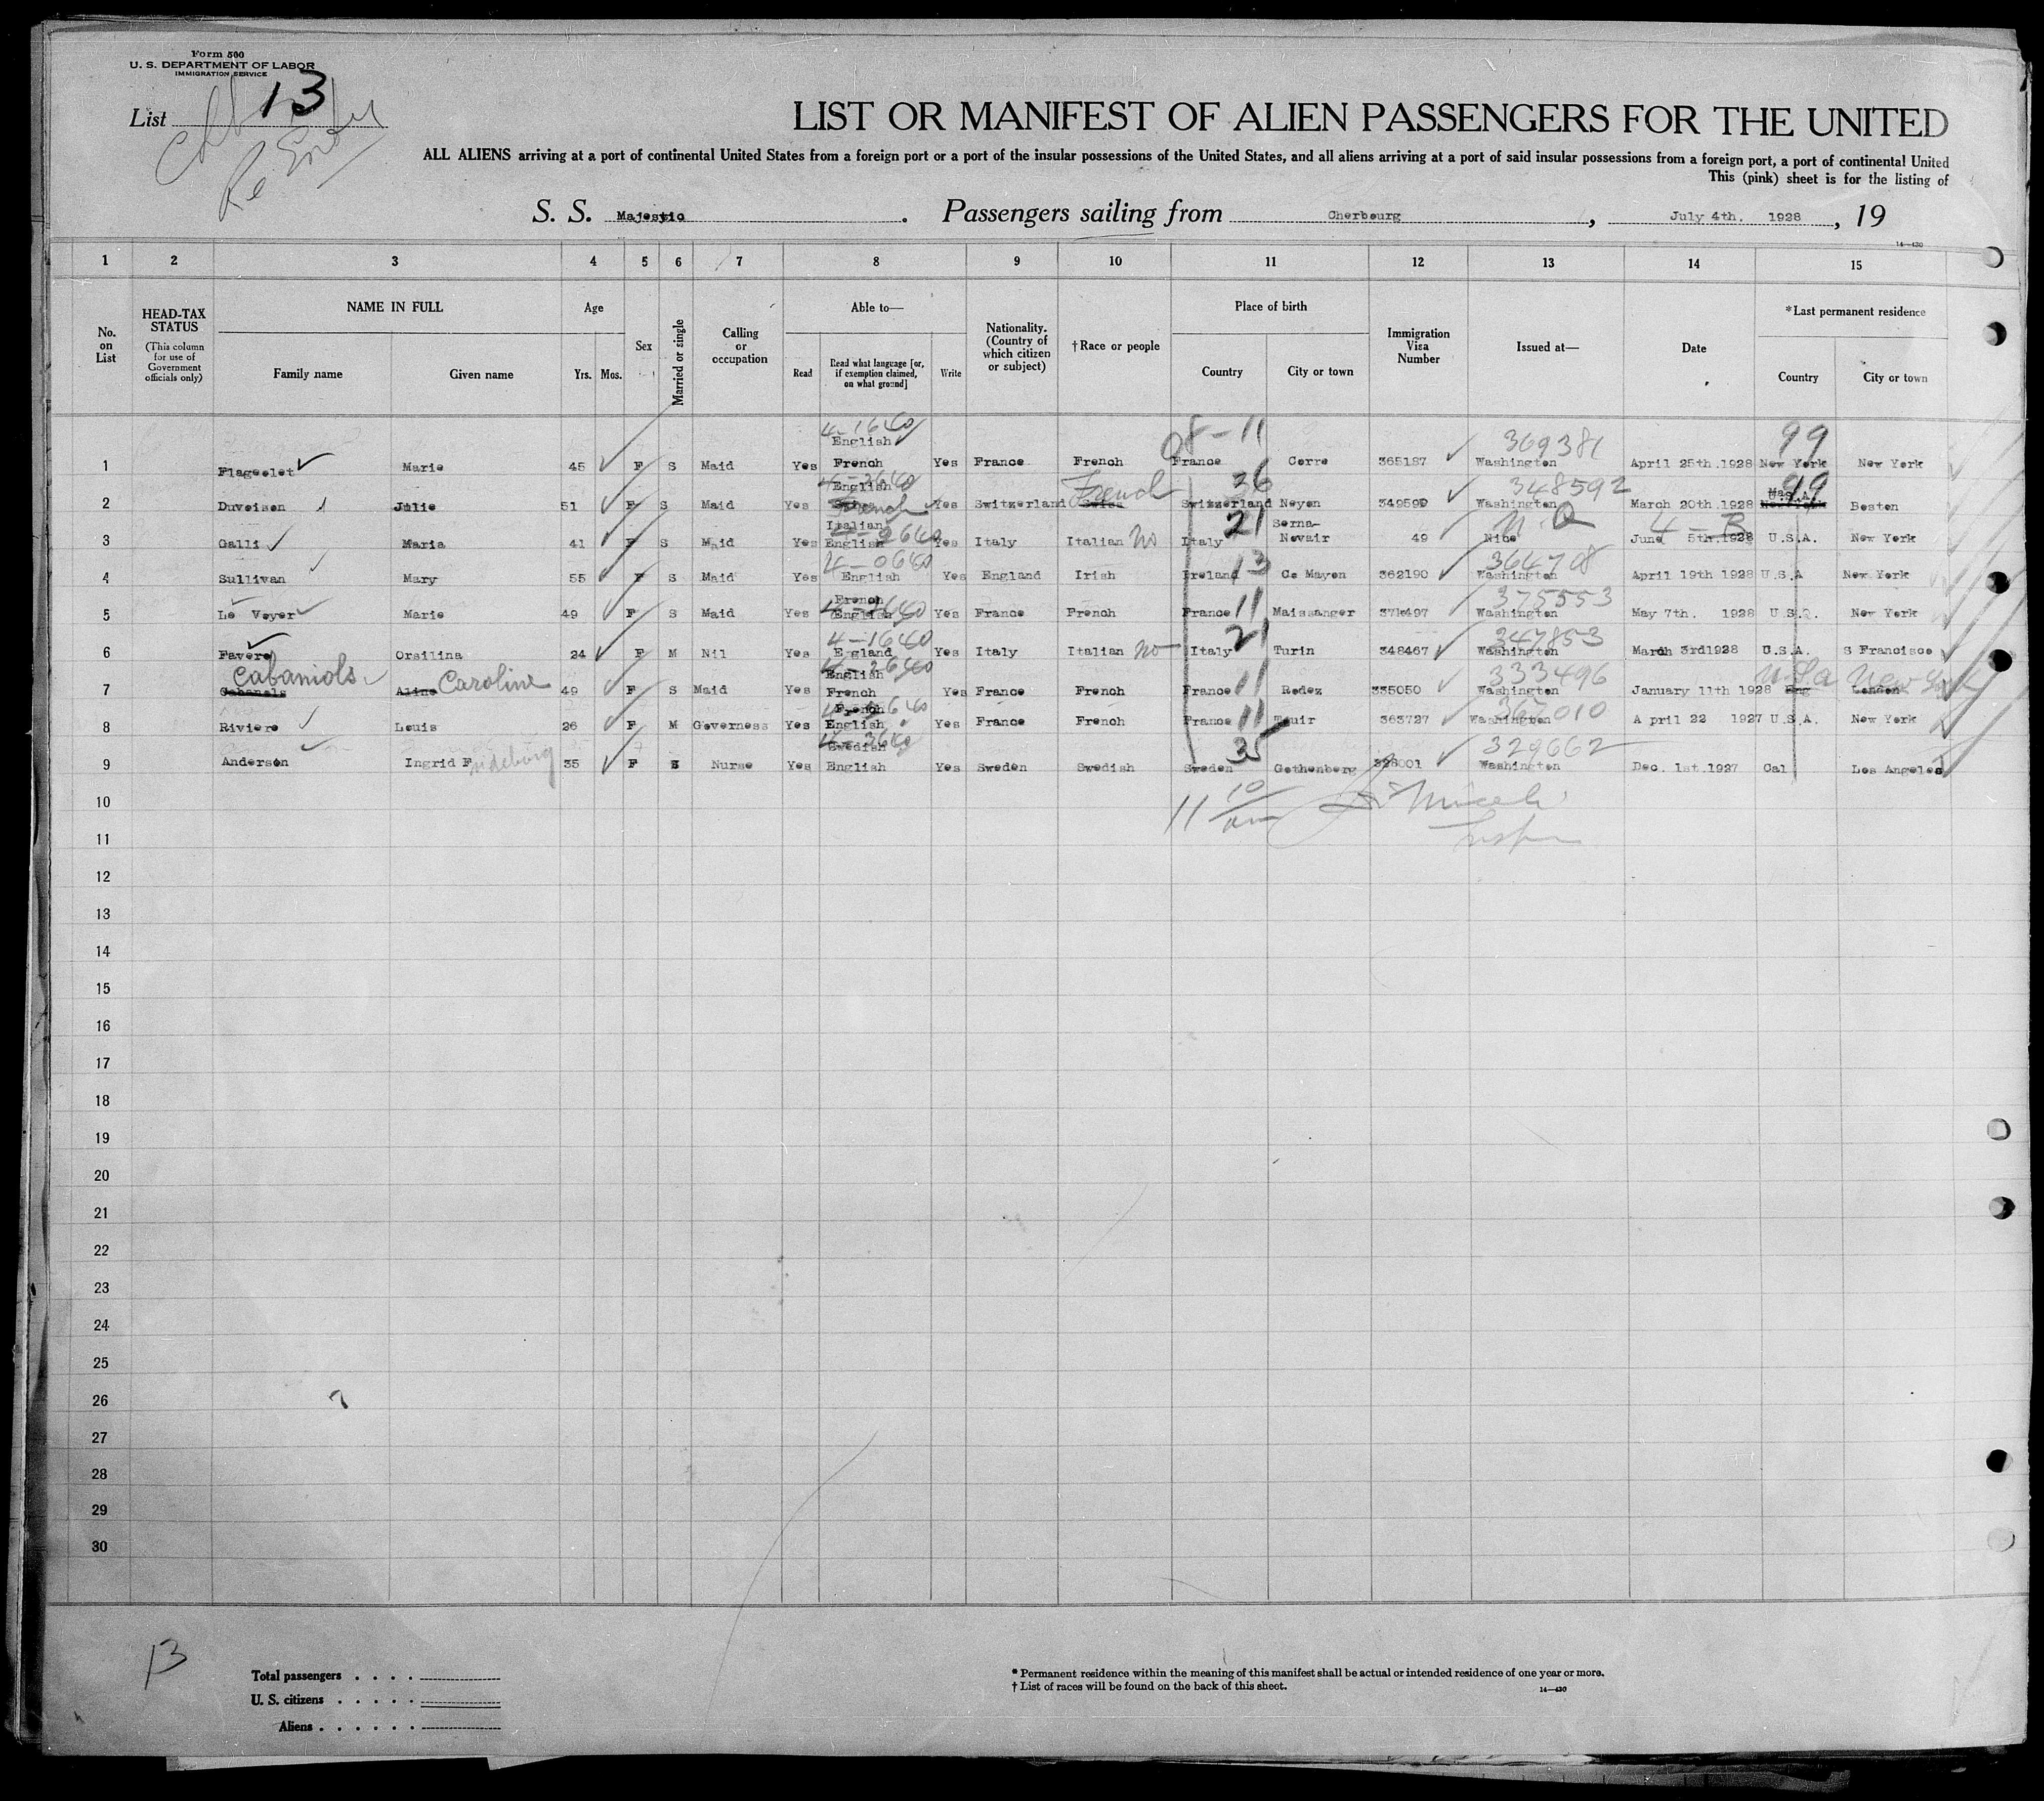 Form 500
U. S. DEPARTMENT OF LABOR
IMMIGRATION SERVICE
List 13
LIST OR MANIFEST OF ALIEN PASSENGERS FOR THE UNITED
ALL ALIENS arriving at a port of continental United States from a foreign port or a port of the insular possessions of the United States, and all aliens arriving at a port of said insular possessions from a foreign port, a port of continental United
This (pink) sheet is for the listing of
S. S. Majestic. Passengers sailing from Cherbourg, July 4th. 1928, 19
14—430
1 2 3 4 5 6 7 8 9 10 11 12 13 14 15
No. on List
HEAD-TAX STATUS
(This column for use of Government officials only)
NAME IN FULL
Family name Given name
Age
Yrs. Mos.
Sex
Married or single
Calling or occupation
Able to—
Read Read what language [or, if exemption claimed, on what ground] Write
Nationality. (Country of which citizen or subject)
†Race or people
Place of birth
Country City or town
Immigration Visa Number
Issued at—
Date
*Last permanent residence
Country City or town
4-1640 08-11 369381 99
English
1 Flageolet Marie 45 F S Maid Yes French Yes France French France Corre 365187 Washington April 25th.1928 New York New York
English French 36 348592 99
2 Duvoisen Julie 51 F S Maid Yes French Yes Switzerland Swiss Switzerland Neyon 349590 Washington March 20th.1928 New York Boston
Italian 21 Serna-
3 Galli Maria 41 F S Maid Yes English Yes Italy Italian No Italy Novair 49 Nice June 5th.1928 U.S.A. New York
4-0640 13 364708
4 Sullivan Mary 55 F S Maid Yes English Yes England Irish Ireland Co Mayon 362190 Washington April 19th 1928 U.S.A New York
French 11 375553
5 Le Voyer Marie 49 F S Maid Yes English Yes France French France Maissanger Washington May 7th. 1928 New York
4-1640 21 347853
6 Favero Orsilina 24 F M Nil Yes England Yes Italy Italian No Italy Turin 348467 Washington March 3rd1928 U.S.A. S Francisco
Cabaniols Caroline English 11 333496 U.S.A New York
7 Cabanels Aline 49 F S Maid Yes French Yes France French France Rodez 335050 Washington January 11th 1928 Eng London
French 11 367010
8 Riviere Louis 26 F M Governess Yes English Yes France French France 363727 Washington A pril 22 1927 U.S.A. New York
Swedish 35 329662
9 Anderson Ingrid F 35 F S Nurse Yes English Yes Sweden Swedish Sweden Gothenberg 328001 Washington Dec. 1st.1927 Cal Los Angeles
10
11
12
13
14
15
16
17
18
19
20
21
22
23
24
25
26
27
28
29
30
13
Total passengers . . . .
U. S. citizens . . . . .
Aliens . . . . . .
* Permanent residence within the meaning of this manifest shall be actual or intended residence of one year or more.
† List of races will be found on the back of this sheet.
14—430